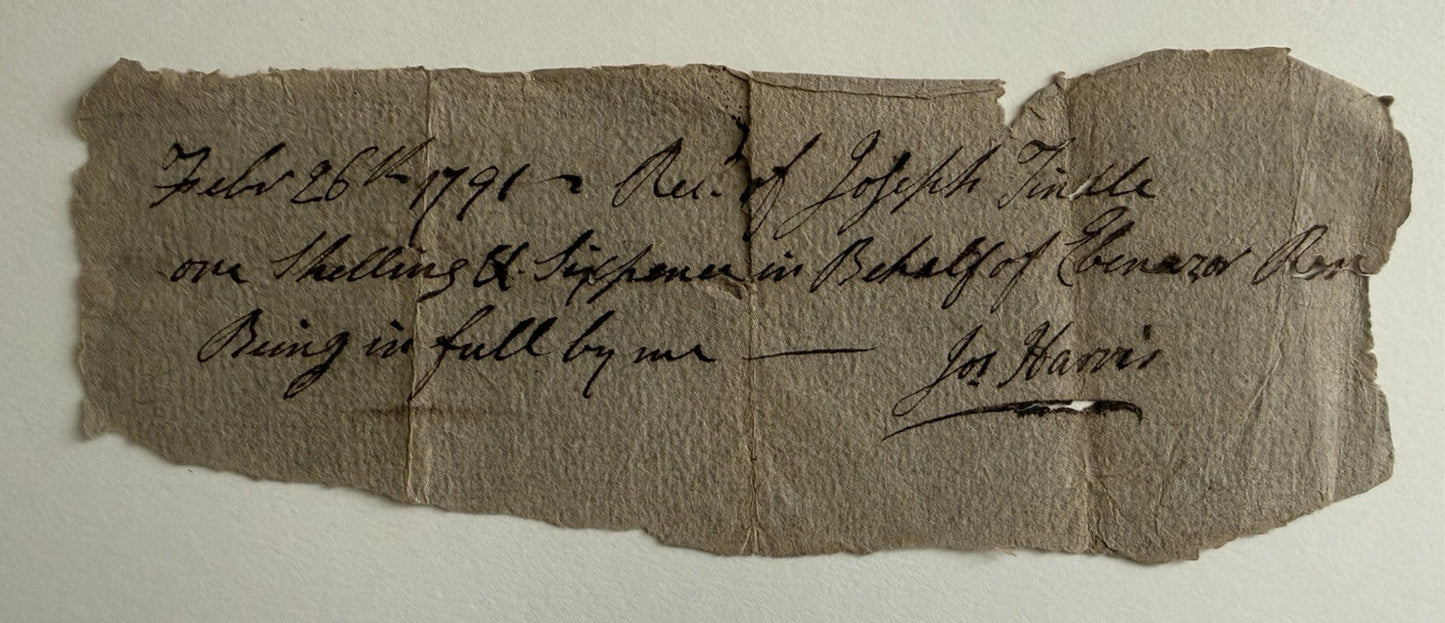 Febr 26th 1791 ~ Recd. of Joseph Tindle
one Shelling &. Sixpence in Behalf of Ebenazor
Being in full by me —— Jos Harris